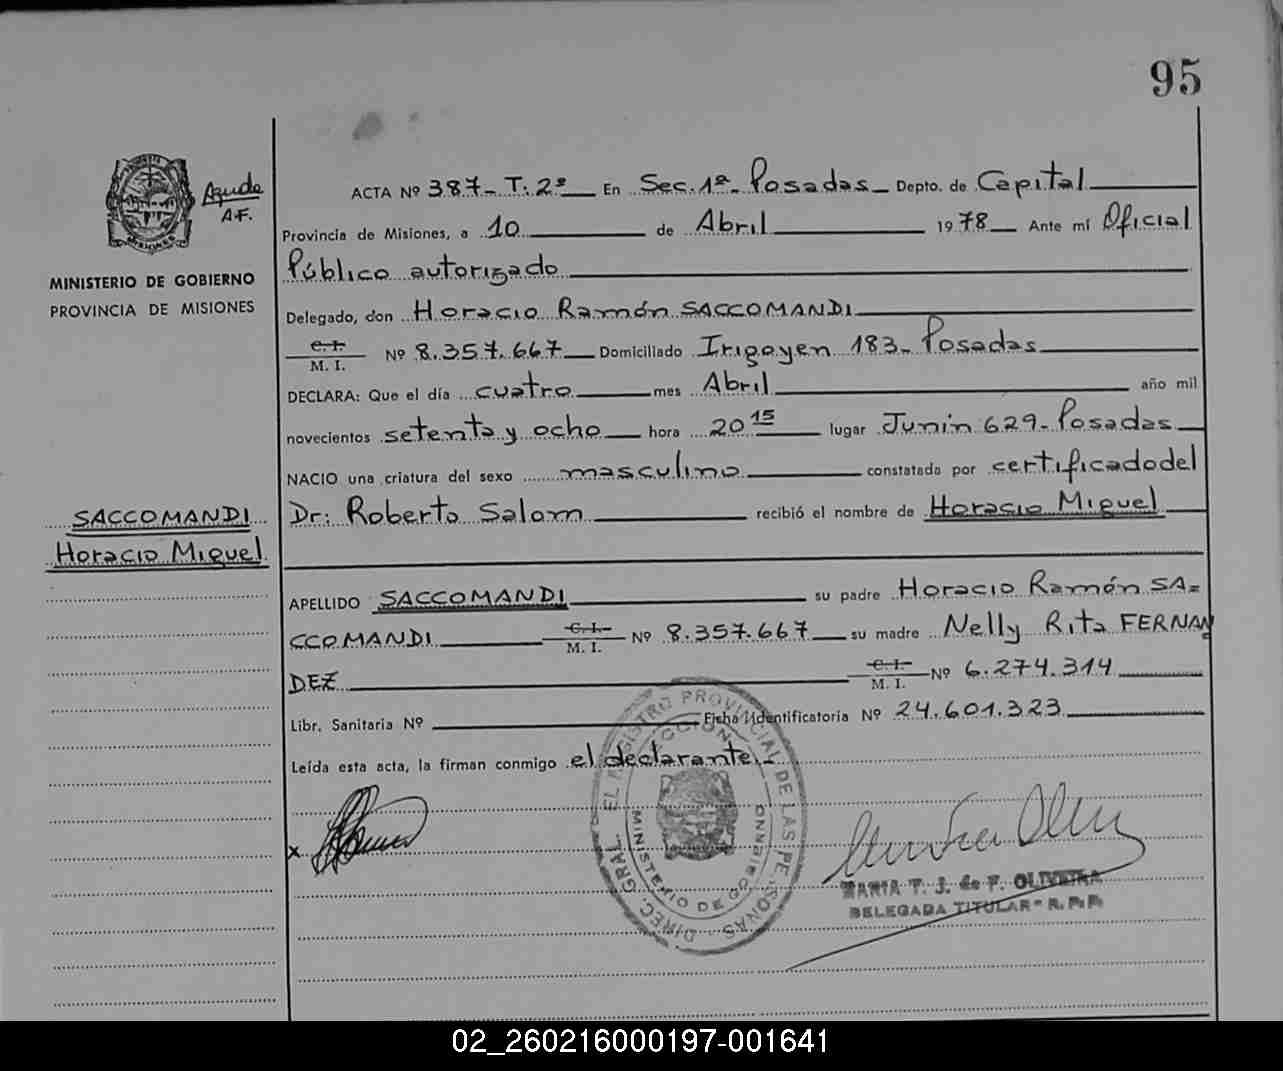 95
Ayude
A.F.
MINISTERIO DE GOBIERNO
PROVINCIA DE MISIONES
SACCOMANDI
Horacio Miguel
ACTA Nº 387- T: 2º En Sec. 1ª- Posadas- Depto. de Capital
Provincia de Misiones, a 10 de Abril 1978 Ante mí Oficial
Público autorizado
Delegado, don Horacio Ramón SACCOMANDI
C. I.
M. I. Nº 8.357.667 Domiciliado Irigoyen 183- Posadas
DECLARA: Que el día cuatro mes Abril año mil
novecientos setenta y ocho hora 20 15 lugar Junin 629- Posadas
NACIO una criatura del sexo masculino constatada por certificado del
Dr: Roberto Salom recibió el nombre de Horacio Miguel
APELLIDO SACCOMANDI su padre Horacio Ramón SA=
CCOMANDI C. I. M. I. Nº 8.357.667 su madre Nelly Rita FERNAN
DEZ C. I. M. I. Nº 6.274.314
Libr. Sanitaria Nº Ficha Identificatoria Nº 24.601.323
Leída esta acta, la firman conmigo el declarante.-
x
DIREC. GRAL. EL REGISTRO PROVINCIAL DE LAS PERSONAS
MINISTERIO DE GOBIERNO
MARIA T. J. de F. OLIVEIRA
DELEGADA TITULAR - R. P. P.
02_260216000197-001641